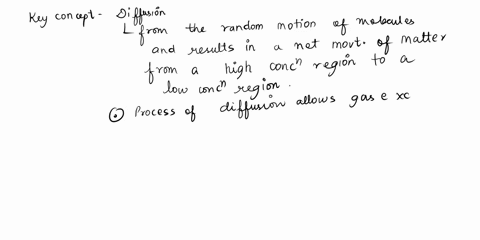 Key concept - Diffusion
from the random motion of molecules
and results in a net movt. of matter
from a high concⁿ region to a
low concⁿ region.
⊙ Process of diffusion allows gas e xc